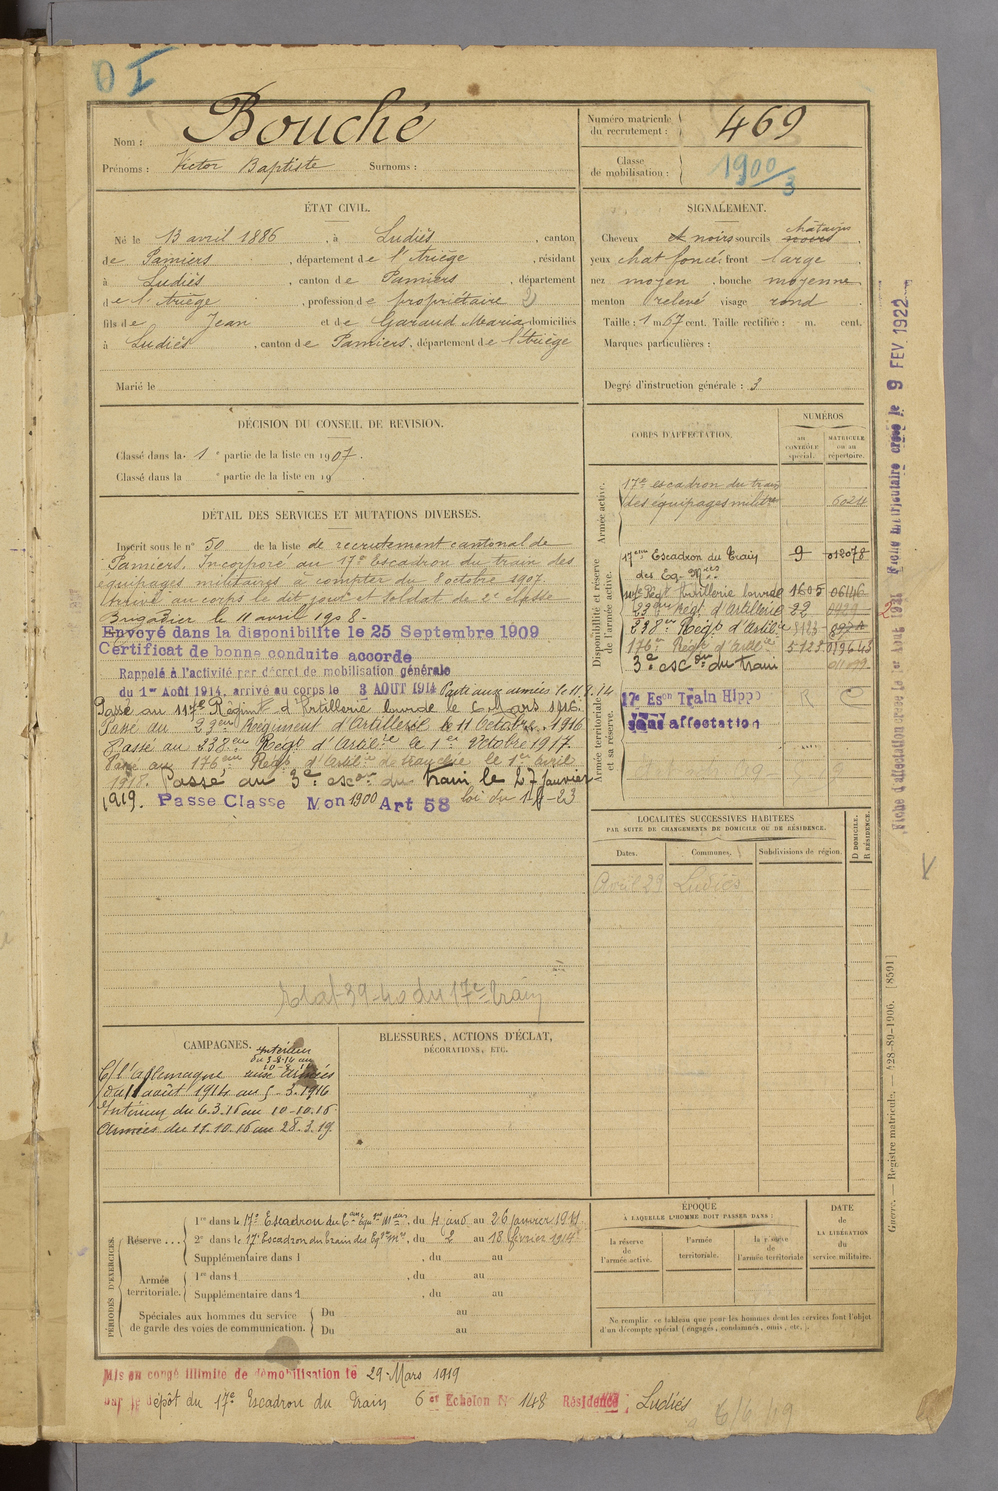 O I
Nom : Bouché
Prénoms : Victor Baptiste Surnoms :
Numéro matricule du recrutement : 469
Classe de mobilisation : 1900/3
ÉTAT CIVIL.
Né le 13 avril 1886, à Ludiès, canton
de Pamiers, département de l'Ariège, résidant
à Ludiès, canton de Pamiers, département
de l'Ariège, profession de propriétaire
fils de Jean et de Garaud Maria domiciliés
à Ludiès, canton de Pamiers, département de l'Ariège
Marié le
SIGNALEMENT.
châtains
Cheveux et noirs sourcils noirs
yeux chat foncé, front large
nez moyen, bouche moyenne
menton relevé visage rond
Taille : 1 m 67 cent. Taille rectifiée : m. cent.
Marques particulières :
Degré d'instruction générale : 3
DÉCISION DU CONSEIL DE REVISION.
Classé dans la 1e partie de la liste en 1907.
Classé dans la e partie de la liste en 19
DÉTAIL DES SERVICES ET MUTATIONS DIVERSES.
Inscrit sous le n° 50 de la liste de recrutement cantonal de
Pamiers. Incorporé au 17e Escadron du train des
équipages militaires à compter du 8 octobre 1907
Arrivé au corps le dit jour et soldat de 2e classe
Brigadier le 11 avril 1908.
Envoyé dans la disponibilite le 25 Septembre 1909
Certificat de bonne conduite accorde
Rappelé à l'activité par décret de mobilisation générale
du 1er Août 1914, arrivé au corps le 3 AOUT 1914 Parti aux armées le 11.8.14
Passé au 117e Régiment d'Artillerie lourde le 6 Mars 1916.
Passé au Régiment d'Artillerie le 11 Octobre 1916
Passé au 238e Régt d'Artilie le 1er Octobre 1917.
Passé au 176ème Régt d'Artilie de tranchée le 1er avril
1918. Passé au 3e escon du train le 27 Janvier
1919. Passe Classe Mon 1900 Art 58 loi du 1-4-23
Etat 39-40 du 17e train
CORPS D'AFFECTATION.
NUMÉROS
au CONTRÔLE spécial.
MATRICULE ou au répertoire.
Armée active.
17e escadron du train
des équipages militres 6024
Disponibilité et réserve de l'armée active.
17ème Escadron du Train 9 012078
des Eq. Mres
Régt Artillerie lourde 1605 06446
Régt d'Artillerie 22
238e Régt d'Artilie
176e Régt d'Artilie 5128 019643
3e escon du train
Armée territoriale et sa réserve.
17e Escn Train Hippo R C
sans affectation
LOCALITÉS SUCCESSIVES HABITÉES
PAR SUITE DE CHANGEMENTS DE DOMICILE OU DE RÉSIDENCE.
Dates. Communes. Subdivisions de région.
D DOMICILE. R RÉSIDENCE.
Avril 29 Ludiès
CAMPAGNES.
Intérieur
du 3-8-14 au
10-8-14
C/ l'Allemagne aux armées
du 11 août 1914 au 5-3-1916
Intérieur du 6.3.16 au 10-10-16
Armées du 11.10.16 au 28.3.19
BLESSURES, ACTIONS D'ÉCLAT,
DÉCORATIONS, ETC.
PÉRIODES D'EXERCICES.
Réserve ... 1re dans le 17e Escadron du Ein Equipges Mres, du 4 janv au 26 Janvier 1911.
2e dans le 17e Escadron du train des Eqges Mres, du 2 au 18 février 1914
Supplémentaire dans l , du au
Armée territoriale. 1re dans l , du au
Supplémentaire dans l , du au
Spéciales aux hommes du service de garde des voies de communication. Du au
Du au
ÉPOQUE
À LAQUELLE L'HOMME DOIT PASSER DANS :
la réserve de l'armée active.
l'armée territoriale.
la réserve de l'armée territoriale
DATE de LA LIBÉRATION du service militaire.
Ne remplir ce tableau que pour les hommes dont les services font l'objet
d'un décompte spécial (engagés, condamnés, omis, etc.).
Mis en congé illimité de démobilisation le 29 Mars 1919
par le dépôt du 17e Escadron du Train 6e Echelon N° 148 Résidence : Ludiès
Fiche matriculaire créée le 9 FEV 1922
Fiche d'affectation créée le 1er Août 1921
Guerre. — Registre matricule. — 428-89-1906. [8591]